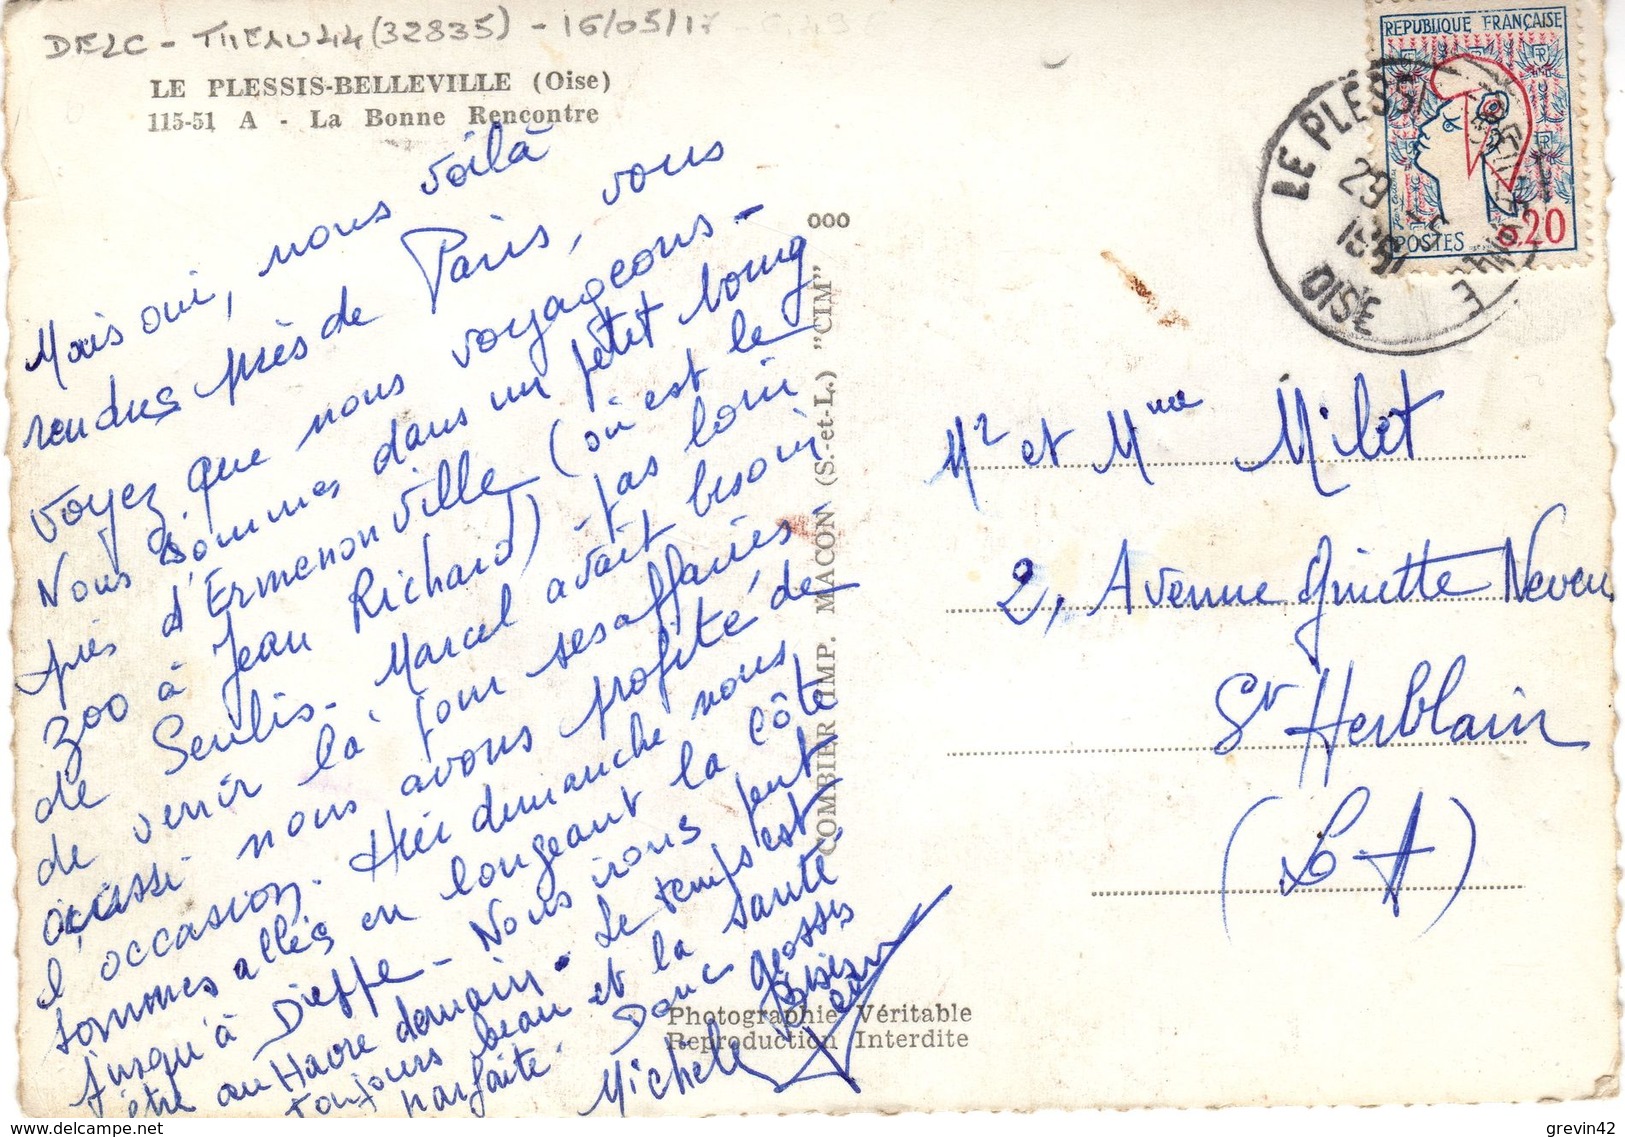 DELC - THEAU44 (32835) - 16/05/17
LE PLESSIS-BELLEVILLE (Oise)
115-51 A - La Bonne Rencontre
Mais oui, nous voilà
rendus près de Paris, vous
voyez que nous voyageons -
Nous sommes dans un petit bourg
près d'Ermenonville (où est le
zoo à Jean Richard) - pas loin
de Senlis - Marcel avait besoin
de venir là pour ses affaires -
aussi nous avons profité de
l'occasion. Hier dimanche nous
sommes allés en longeant la côte
jusqu'à Dieppe - Nous irons peut
être au Havre demain - Le temps est
toujours beau et la santé
parfaite. Donc grosses
Bises
Michele
000
COMBIER IMP. MACON (S.-et-L.) "CIM"
Photographie Véritable
Reproduction Interdite
REPUBLIQUE FRANÇAISE
POSTES 0,20
LE PLESSIS BELLEVILLE
29
OISE
Mr et Mme Milot
2, Avenue Ginette Neveu
St Herblain
(L A)
delcampe.net
grevin42